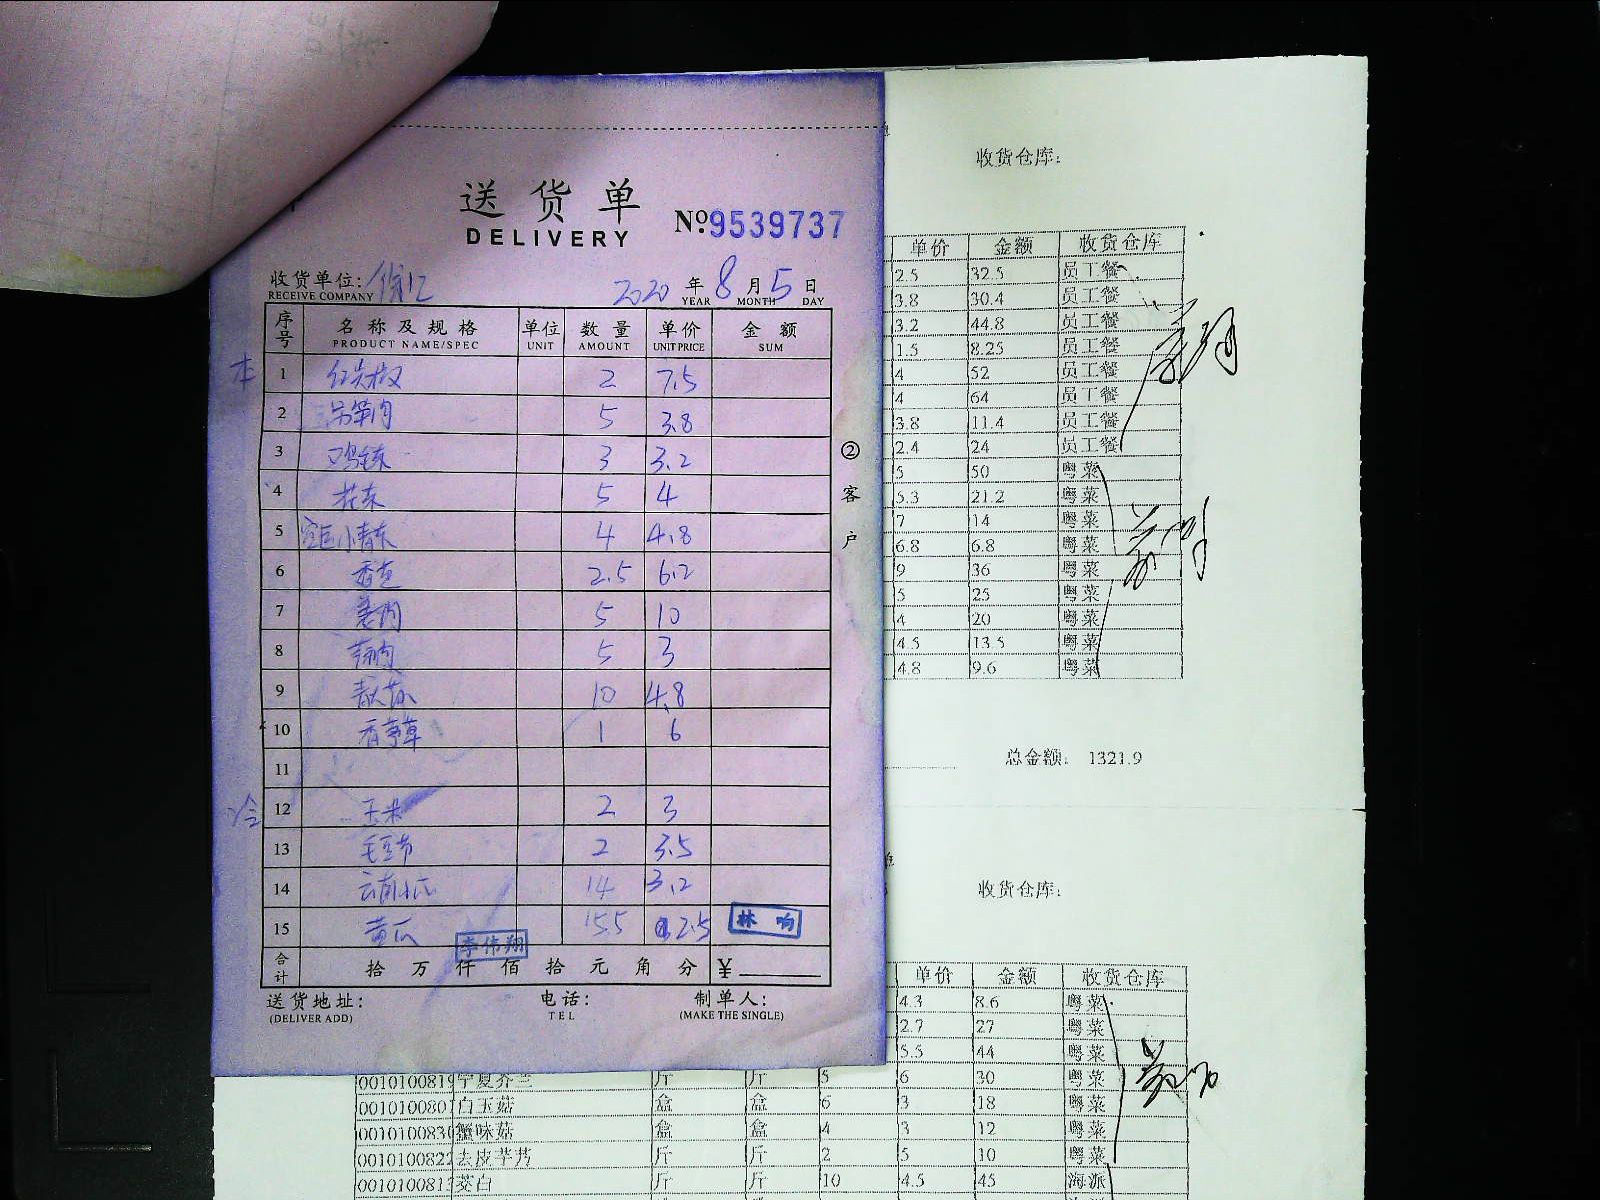 送货单
DELIVERY
№:9539737
收货单位:
RECEIVE COMPANY
2020 年 8 月 5 日
YEAR MONTH DAY
序号 名称及规格 单位 数量 单价 金额
PRODUCT NAME/SPEC UNIT AMOUNT UNIT PRICE SUM
本 1 红尖椒 2 7.5
2 5 3.8
3 3 3.2
4 5 4
5 4 4.8
6 2.5 6.2
7 姜肉 5 10
8 5 3
9 10 4.8
10 香茅草 1 6
11
冷 12 玉米 2 3
13 毛豆节 2 3.5
14 云南小瓜 14 3.2
15 黄瓜 155 2.5 林响
李伟翔
合计 拾万仟佰拾元角分 ¥
送货地址: 电话: 制单人:
(DELIVER ADD) TEL (MAKE THE SINGLE)
②客户
收货仓库:
单价 金额 收货仓库
2.5 32.5 员工餐
3.8 30.4 员工餐
3.2 44.8 员工餐
1.5 8.25 员工餐
4 52 员工餐
4 64 员工餐
3.8 11.4 员工餐
2.4 24 员工餐
5 50 粤菜
5.3 21.2 粤菜
7 14 粤菜
6.8 6.8 粤菜
9 36 粤菜
5 25 粤菜
4 20 粤菜
4.5 13.5 粤菜
4.8 9.6 粤菜
总金额: 1321.9
收货仓库:
单价 金额 收货仓库
4.3 8.6 粤菜
2.7 27 粤菜
5.5 44 粤菜
0010100819 宁夏芥兰 斤 斤 5 6 30 粤菜
001010080 白玉菇 盒 盒 6 3 18 粤菜
001010083 蟹味菇 盒 盒 4 3 12 粤菜
001010082 去皮芋艿 斤 斤 2 5 10 粤菜
001010081 茭白 斤 斤 10 4.5 45 海派